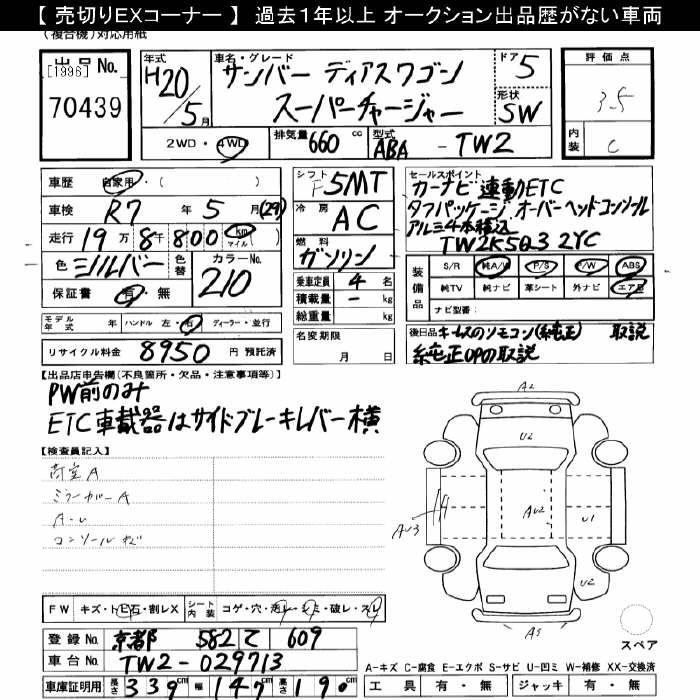 【 売切りEXコーナー 】 過去1年以上 オークション出品歴がない車両
(複合機)対応用紙
出品 No.
[1996]
70439
年式
H20/5月
車名・グレード
サンバー ディアスワゴン
スーパーチャージャー
ドア 5
形状
SW
評価点
3.5
内装
C
2WD・4WD
排気量 660 cc
型式 ABA - TW2
車歴 自家用・( )
車検 R7 年 5 月 (29)
走行 19 万 8 千 800 km マイル ( )
色 シルバー 色替
カラーNo. 210
保証書 有・無
シフト F5MT
冷房 AC
燃料 ガソリン
乗車定員 4 名
積載量 - kg
総重量 kg
セールスポイント
カーナビ連動ETC
タフパッケージ.オーバーヘッドコンソール
アルミ4本積込
TW2K5Q3 2YC
装備品
S/R 純A/W P/S P/W ABS
純TV 純ナビ 革シート 外ナビ エアB
ナビ型番:
モデル年式 年 ハンドル 左・右 ディーラー・並行
リサイクル料金 8950 円 預託済
名変期限
月 日
後日品 キーレスのリモコン(純正) 取説
純正OPの取説
【出品店申告欄(不良箇所・欠品・注意事項等)】
PW前のみ
ETC車載器はサイドブレーキレバー横
【検査員記入】
荷室A
ミラーカバーA
A・U
コンソールキズ
A2
U2
AU2
AU3
U1
U2
A3
スペア
FW キズ・トビ石・割レX
シート内装 コゲ・穴・汚レ・シミ・破レ・スレ
登録 No. 京都 582 て 609
車台 No. TW2-029713
車庫証明用 長さ 339 cm 幅 147 cm 高さ 190 cm
A-キズ C-腐食 E-エクボ S-サビ U-凹ミ W-補修 XX-交換済
工具 有・無 ジャッキ 有・無